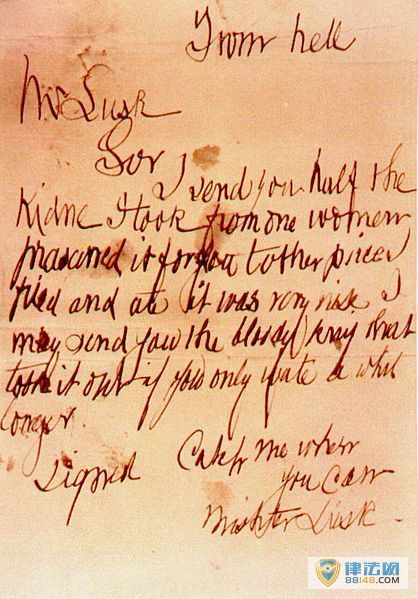 From hell
Mr Lusk
Sor
I send you half the
Kidne I took from one women
prasarved it for you tother piece I
fried and ate it was very nise I
may send you the bloody knif that
took it out if you only wate a whil
longer
signed Catch me when
you can
Mishter Lusk
律法网
88148.COM